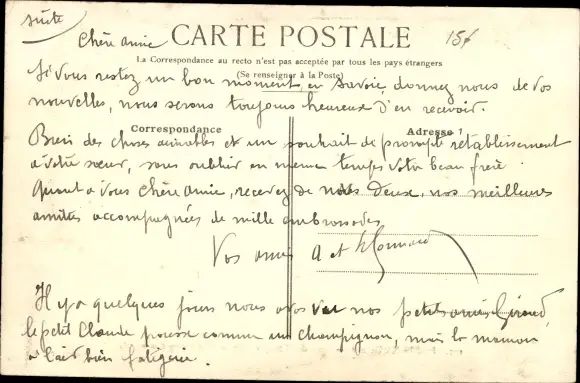 suite
Chère amie CARTE POSTALE 15f
La Correspondance au recto n'est pas acceptée par tous les pays étrangers
(Se renseigner à la Poste)
Si vous restez un bon moment en Savoie, donnez nous de vos
nouvelles, nous serons toujours heureux d'en recevoir.
Correspondance Adresse
Bien des choses aimables et un souhait de prompt rétablissement
à votre sœur, sans oublier en même temps votre beau frère
Quant à vous chère amie, recevez de nous deux, nos meilleures
amitiés accompagnées de mille embrassades
Vos amis A et
Il y a quelques jours nous avons vu nos petits amis Giraud,
le petit Claude pousse comme un champignon, mais la maman
a l'air bien fatiguée.